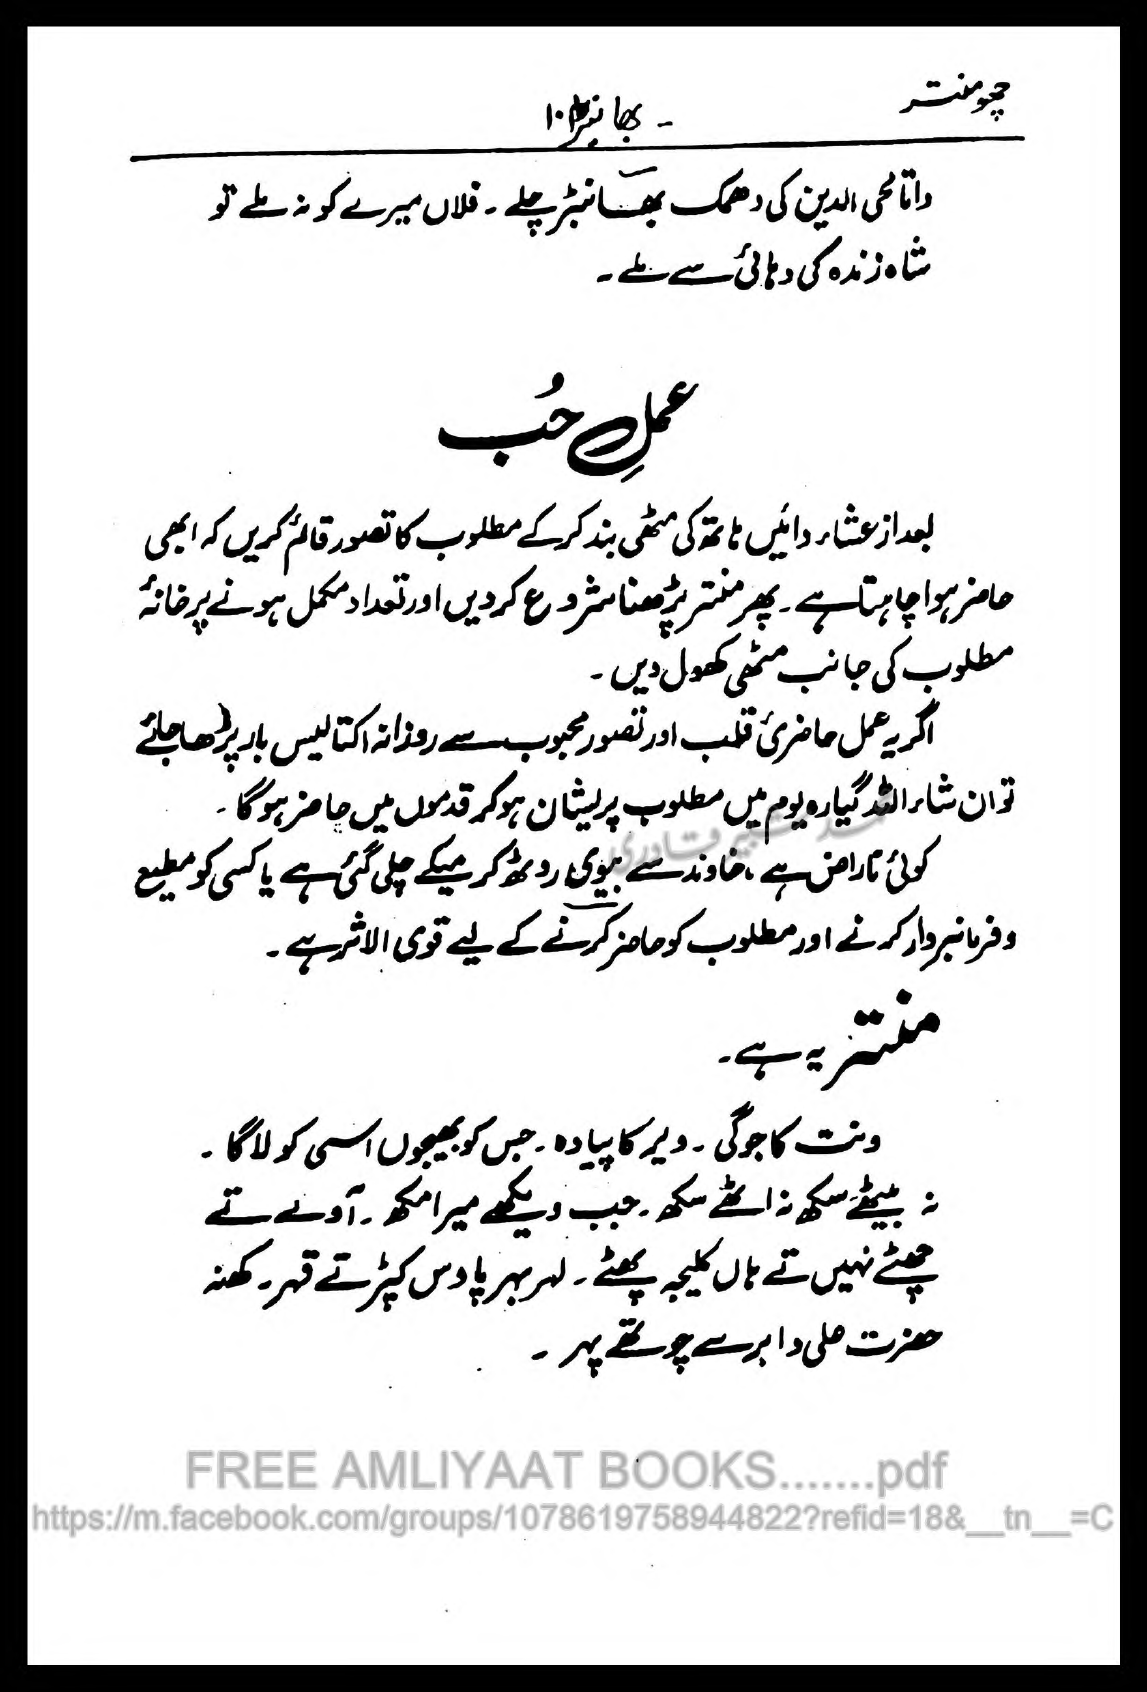 چھو منتر
بھانبڑ ۱۰
داتا محی الدین کی دھمک بھانبڑ چلے ۔ فلاں میرے کو نہ ملے تو
شاہ زندہ کی دہائی سے ملے ۔
عملِ حُب
بعد از عشاء دائیں ہاتھ کی مٹھی بند کر کے مطلوب کا تصور قائم کریں کہ ابھی
حاضر ہوا چاہتا ہے ۔ پھر منتر پڑھنا شروع کر دیں اور تعداد مکمل ہونے پر خانۂ
مطلوب کی جانب مٹھی کھول دیں ۔
اگر یہ عمل حاضریٔ قلب اور تصور محبوب سے روزانہ اکتالیس بار پڑھا جائے
تو ان شاء اللہ گیارہ یوم میں مطلوب پریشان ہو کر قدموں میں حاضر ہو گا ۔
کوئی ناراض ہے ، خاوند سے بیوی روٹھ کر میکے چلی گئی ہے یا کسی کو مطیع
و فرمانبردار کرنے اور مطلوب کو حاضر کرنے کے لیے قوی الاثر ہے ۔
منتر یہ ہے ۔
ونت کا جوگی ۔ ویر کا پیادہ ۔ جس کو بھیجوں اسی کو لاگا ۔
نہ بیٹھے سکھ نہ اٹھے سکھ ۔ جب دیکھے میرا مکھ ۔ آوے تے
چھٹے نہیں تے ہاں کلیجہ پھٹے ۔ لہر بہر پا دس کپڑتے قہر ۔ کھنہ
حضرت علی دا برسے چوتھے پہر ۔
FREE AMLIYAAT BOOKS.......pdf
https://m.facebook.com/groups/1078619758944822?refid=18&__tn__=C